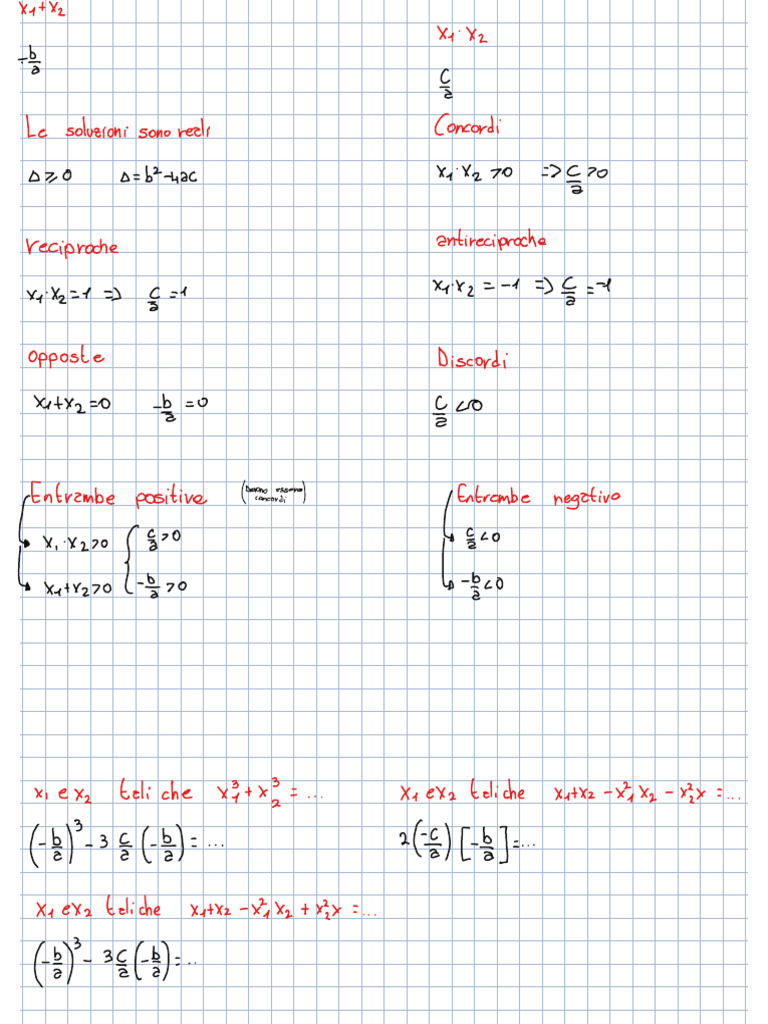 x₁+x₂
-b/a
x₁·x₂
c/a
Le soluzioni sono reali
Δ⩾0 Δ=b²-4ac
Concordi
x₁·x₂>0 => c/a>0
reciproche
x₁·x₂=1 => c/a=1
antireciproche
x₁·x₂=-1 => c/a=-1
opposte
x₁+x₂=0 -b/a=0
Discordi
c/a<0
Entrambe positive (Devono essere concordi)
x₁·x₂>0 { c/a>0
x₁+x₂>0 -b/a>0
Entrambe negativo
c/a<0
-b/a<0
x₁ e x₂ teli che x₁³+x₂³=...
(-b/a)³-3 c/a (-b/a)=...
x₁ e x₂ teli che x₁+x₂-x₁²x₂-x₂²x=...
2(-c/a)[-b/a]=...
x₁ e x₂ teli che x₁+x₂-x₁²x₂+x₂²x=...
(-b/a)³-3c/a(-b/a)=..